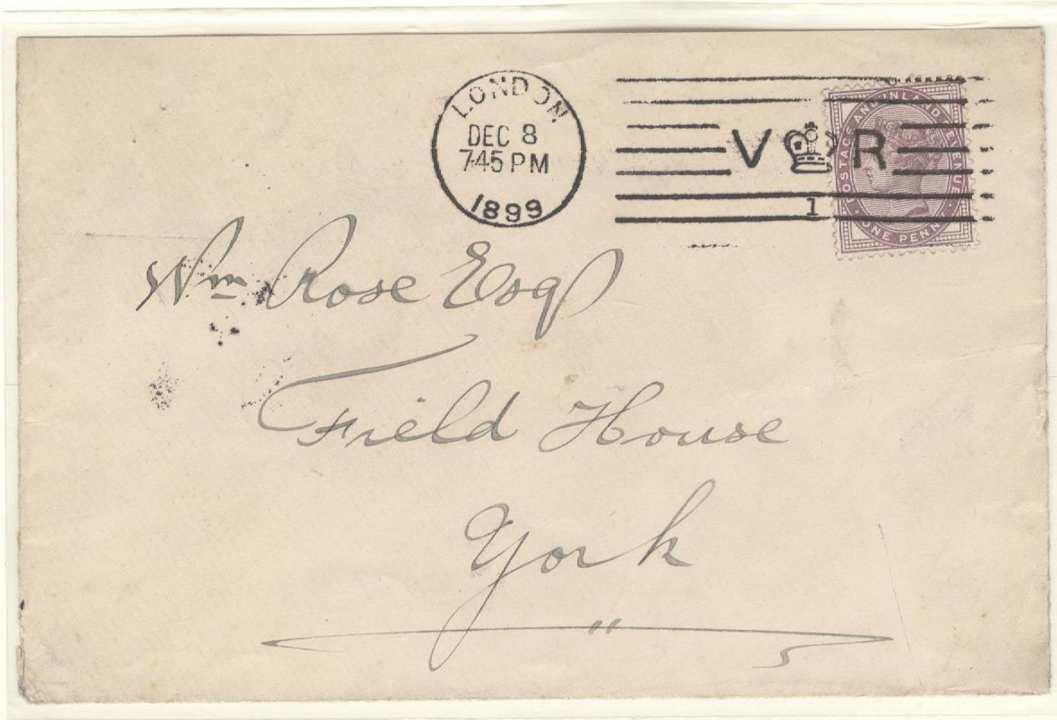 LONDON
DEC 8
7.45 PM
1899
V R
1
POSTAGE AND INLAND REVENUE
ONE PENNY
Wm Rose Esq
Field House
York